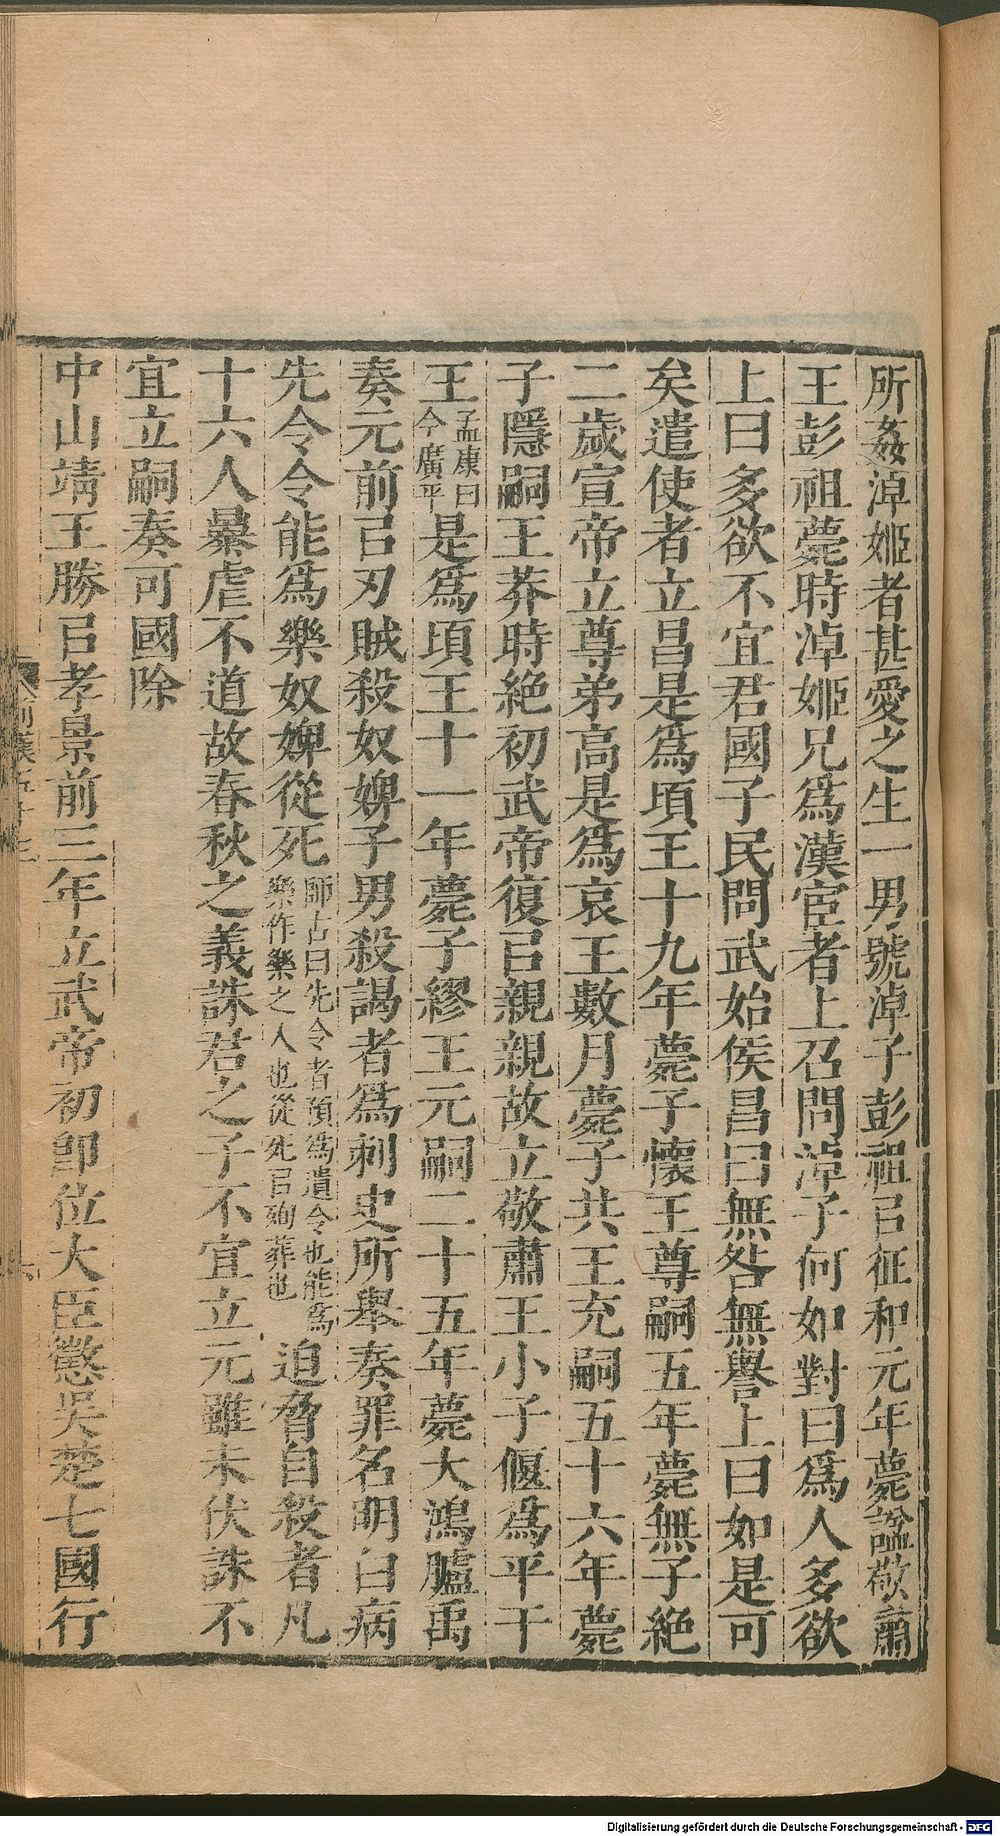 所姦淖姬者甚愛之生一男號淖子彭祖㠯征和元年薨謚敬肅
王彭祖薨時淖姬兄爲漢宦者上召問淖子何如對曰爲人多欲
上曰多欲不宜君國子民問武始侯昌曰無咎無譽上曰如是可
矣遣使者立昌是爲頃王十九年薨子懷王尊嗣五年薨無子絕
二歲宣帝立尊弟高是爲哀王數月薨子共王充嗣五十六年薨
子隱嗣王莽時絕初武帝復㠯親親故立敬肅王小子偃爲平干
王孟康曰今廣平是爲頃王十一年薨子繆王元嗣二十五年薨大鴻臚禹
奏元前㠯刃賊殺奴婢子男殺謁者爲刺史所舉奏罪名明白病
先令令能爲樂奴婢從死師古曰先令者預爲遺令也能爲樂作樂之人也從死㠯殉葬也迫脅自殺者凡
十六人暴虐不道故春秋之義誅君之子不宜立元雖未伏誅不
宜立嗣奏可國除
中山靖王勝㠯孝景前三年立武帝初卽位大臣懲吳楚七國行
Digitalisierung gefördert durch die Deutsche Forschungsgemeinschaft - DFG